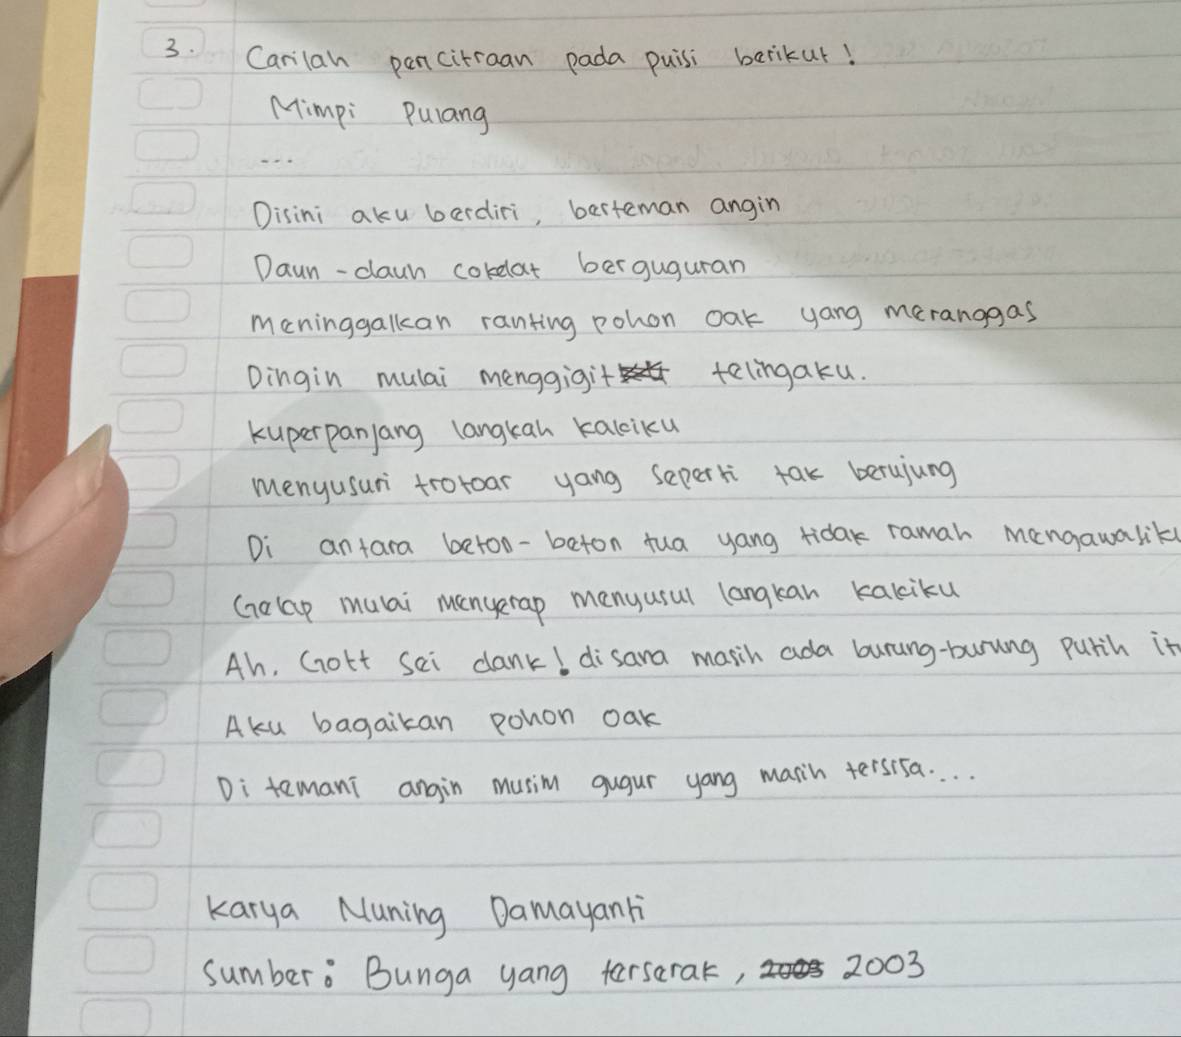 3. Carilah pencitraan pada puisi berikut!
Mimpi Pulang
...
Disini aku berdiri, berteman angin
Daun-daun cokelat berguguran
meninggalkan ranting pohon oak yang meranggas
Dingin mulai menggigit telingaku.
kuperpanjang langkah kakiku
menyusuri trotoar yang seperti tak berujung
Di antara beton-beton tua yang tidak ramah mengawasiku
Gelap mulai menyerap menyusul langkah kakiku
Ah, Gott sei dank! disana masih ada burung-burung putih it
Aku bagaikan pohon oak
Di temani angin musim gugur yang masih tersisa....
Karya Nuning Damayanti
Sumber: Bunga yang terserak, 2003